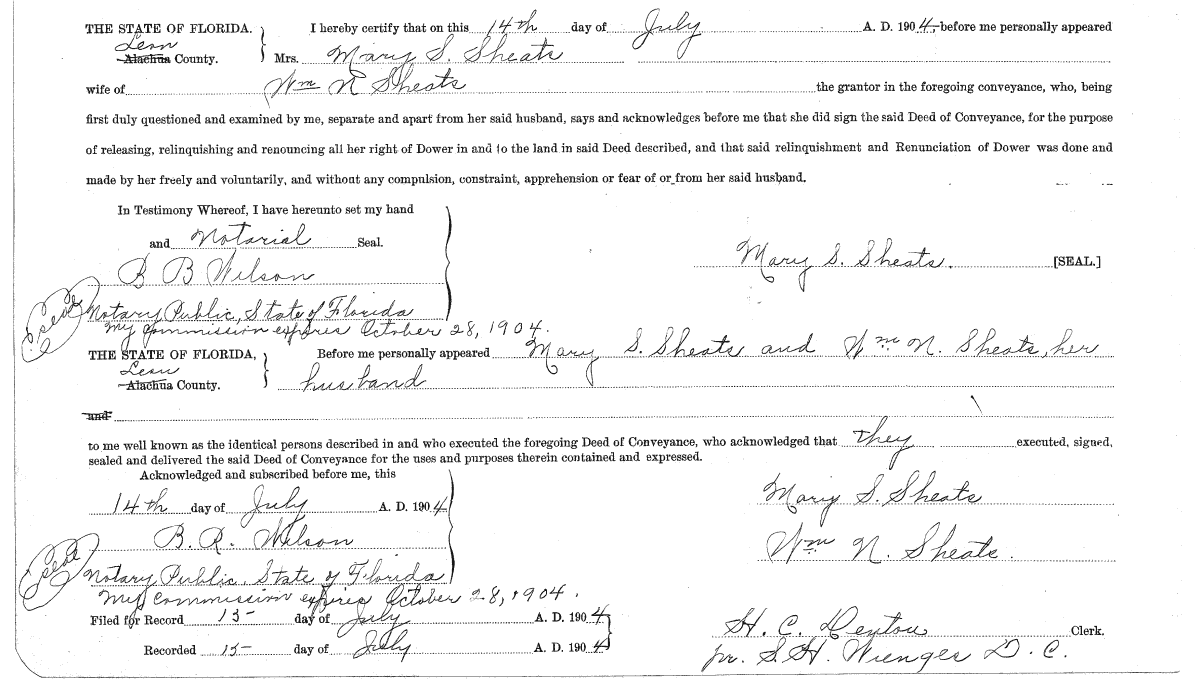 THE STATE OF FLORIDA. I hereby certify that on this 14th day of July A. D. 1904, before me personally appeared
Leon
Alachua County. Mrs. Mary S. Sheats
wife of Wm N Sheats the grantor in the foregoing conveyance, who, being
first duly questioned and examined by me, separate and apart from her said husband, says and acknowledges before me that she did sign the said Deed of Conveyance, for the purpose
of releasing, relinquishing and renouncing all her right of Dower in and to the land in said Deed described, and that said relinquishment and Renunciation of Dower was done and
made by her freely and voluntarily, and without any compulsion, constraint, apprehension or fear of or from her said husband.
In Testimony Whereof, I have hereunto set my hand
and Notarial Seal.
Mary S. Sheats. [SEAL.]
B B Wilson
Seal
Notary Public, State of Florida
My Commission expires October 28, 1904.
THE STATE OF FLORIDA, Before me personally appeared Mary S. Sheats and Wm N. Sheats, her
Leon
Alachua County. husband
and
to me well known as the identical persons described in and who executed the foregoing Deed of Conveyance, who acknowledged that they executed, signed,
sealed and delivered the said Deed of Conveyance for the uses and purposes therein contained and expressed.
Acknowledged and subscribed before me, this
14th day of July A. D. 1904
Mary S. Sheats
B. R. Wilson
Wm N. Sheats.
Seal
Notary Public, State of Florida
My Commission expires October 28, 1904.
Filed for Record 15 day of July A. D. 1904
H. C. Denton Clerk.
Recorded 15 day of July A. D. 1904
pr. S. H. Wienges D. C.